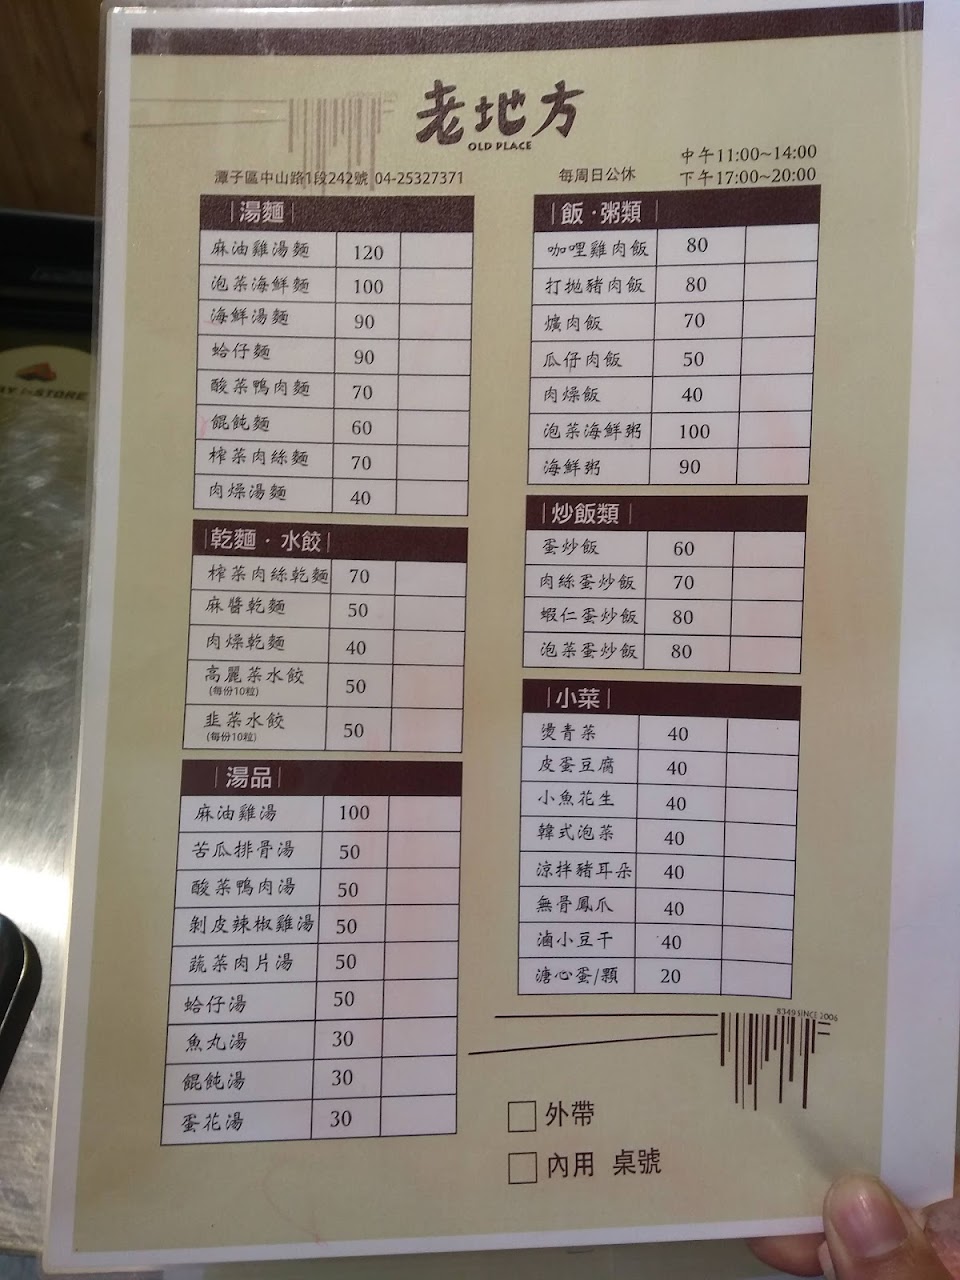 老地方
OLD PLACE
潭子區中山路1段242號 04-25327371
每周日公休
中午11:00~14:00
下午17:00~20:00
湯麵
麻油雞湯麵 120
泡菜海鮮麵 100
海鮮湯麵 90
蛤仔麵 90
酸菜鴨肉麵 70
餛飩麵 60
榨菜肉絲麵 70
肉燥湯麵 40
乾麵·水餃
榨菜肉絲乾麵 70
麻醬乾麵 50
肉燥乾麵 40
高麗菜水餃 50
(每份10粒)
韭菜水餃 50
(每份10粒)
湯品
麻油雞湯 100
苦瓜排骨湯 50
酸菜鴨肉湯 50
剝皮辣椒雞湯 50
蔬菜肉片湯 50
蛤仔湯 50
魚丸湯 30
餛飩湯 30
蛋花湯 30
飯·粥類
咖哩雞肉飯 80
打拋豬肉飯 80
爌肉飯 70
瓜仔肉飯 50
肉燥飯 40
泡菜海鮮粥 100
海鮮粥 90
炒飯類
蛋炒飯 60
肉絲蛋炒飯 70
蝦仁蛋炒飯 80
泡菜蛋炒飯 80
小菜
燙青菜 40
皮蛋豆腐 40
小魚花生 40
韓式泡菜 40
涼拌豬耳朵 40
無骨鳳爪 40
滷小豆干 40
溏心蛋/顆 20
8349 SINCE 2006
外帶
內用 桌號